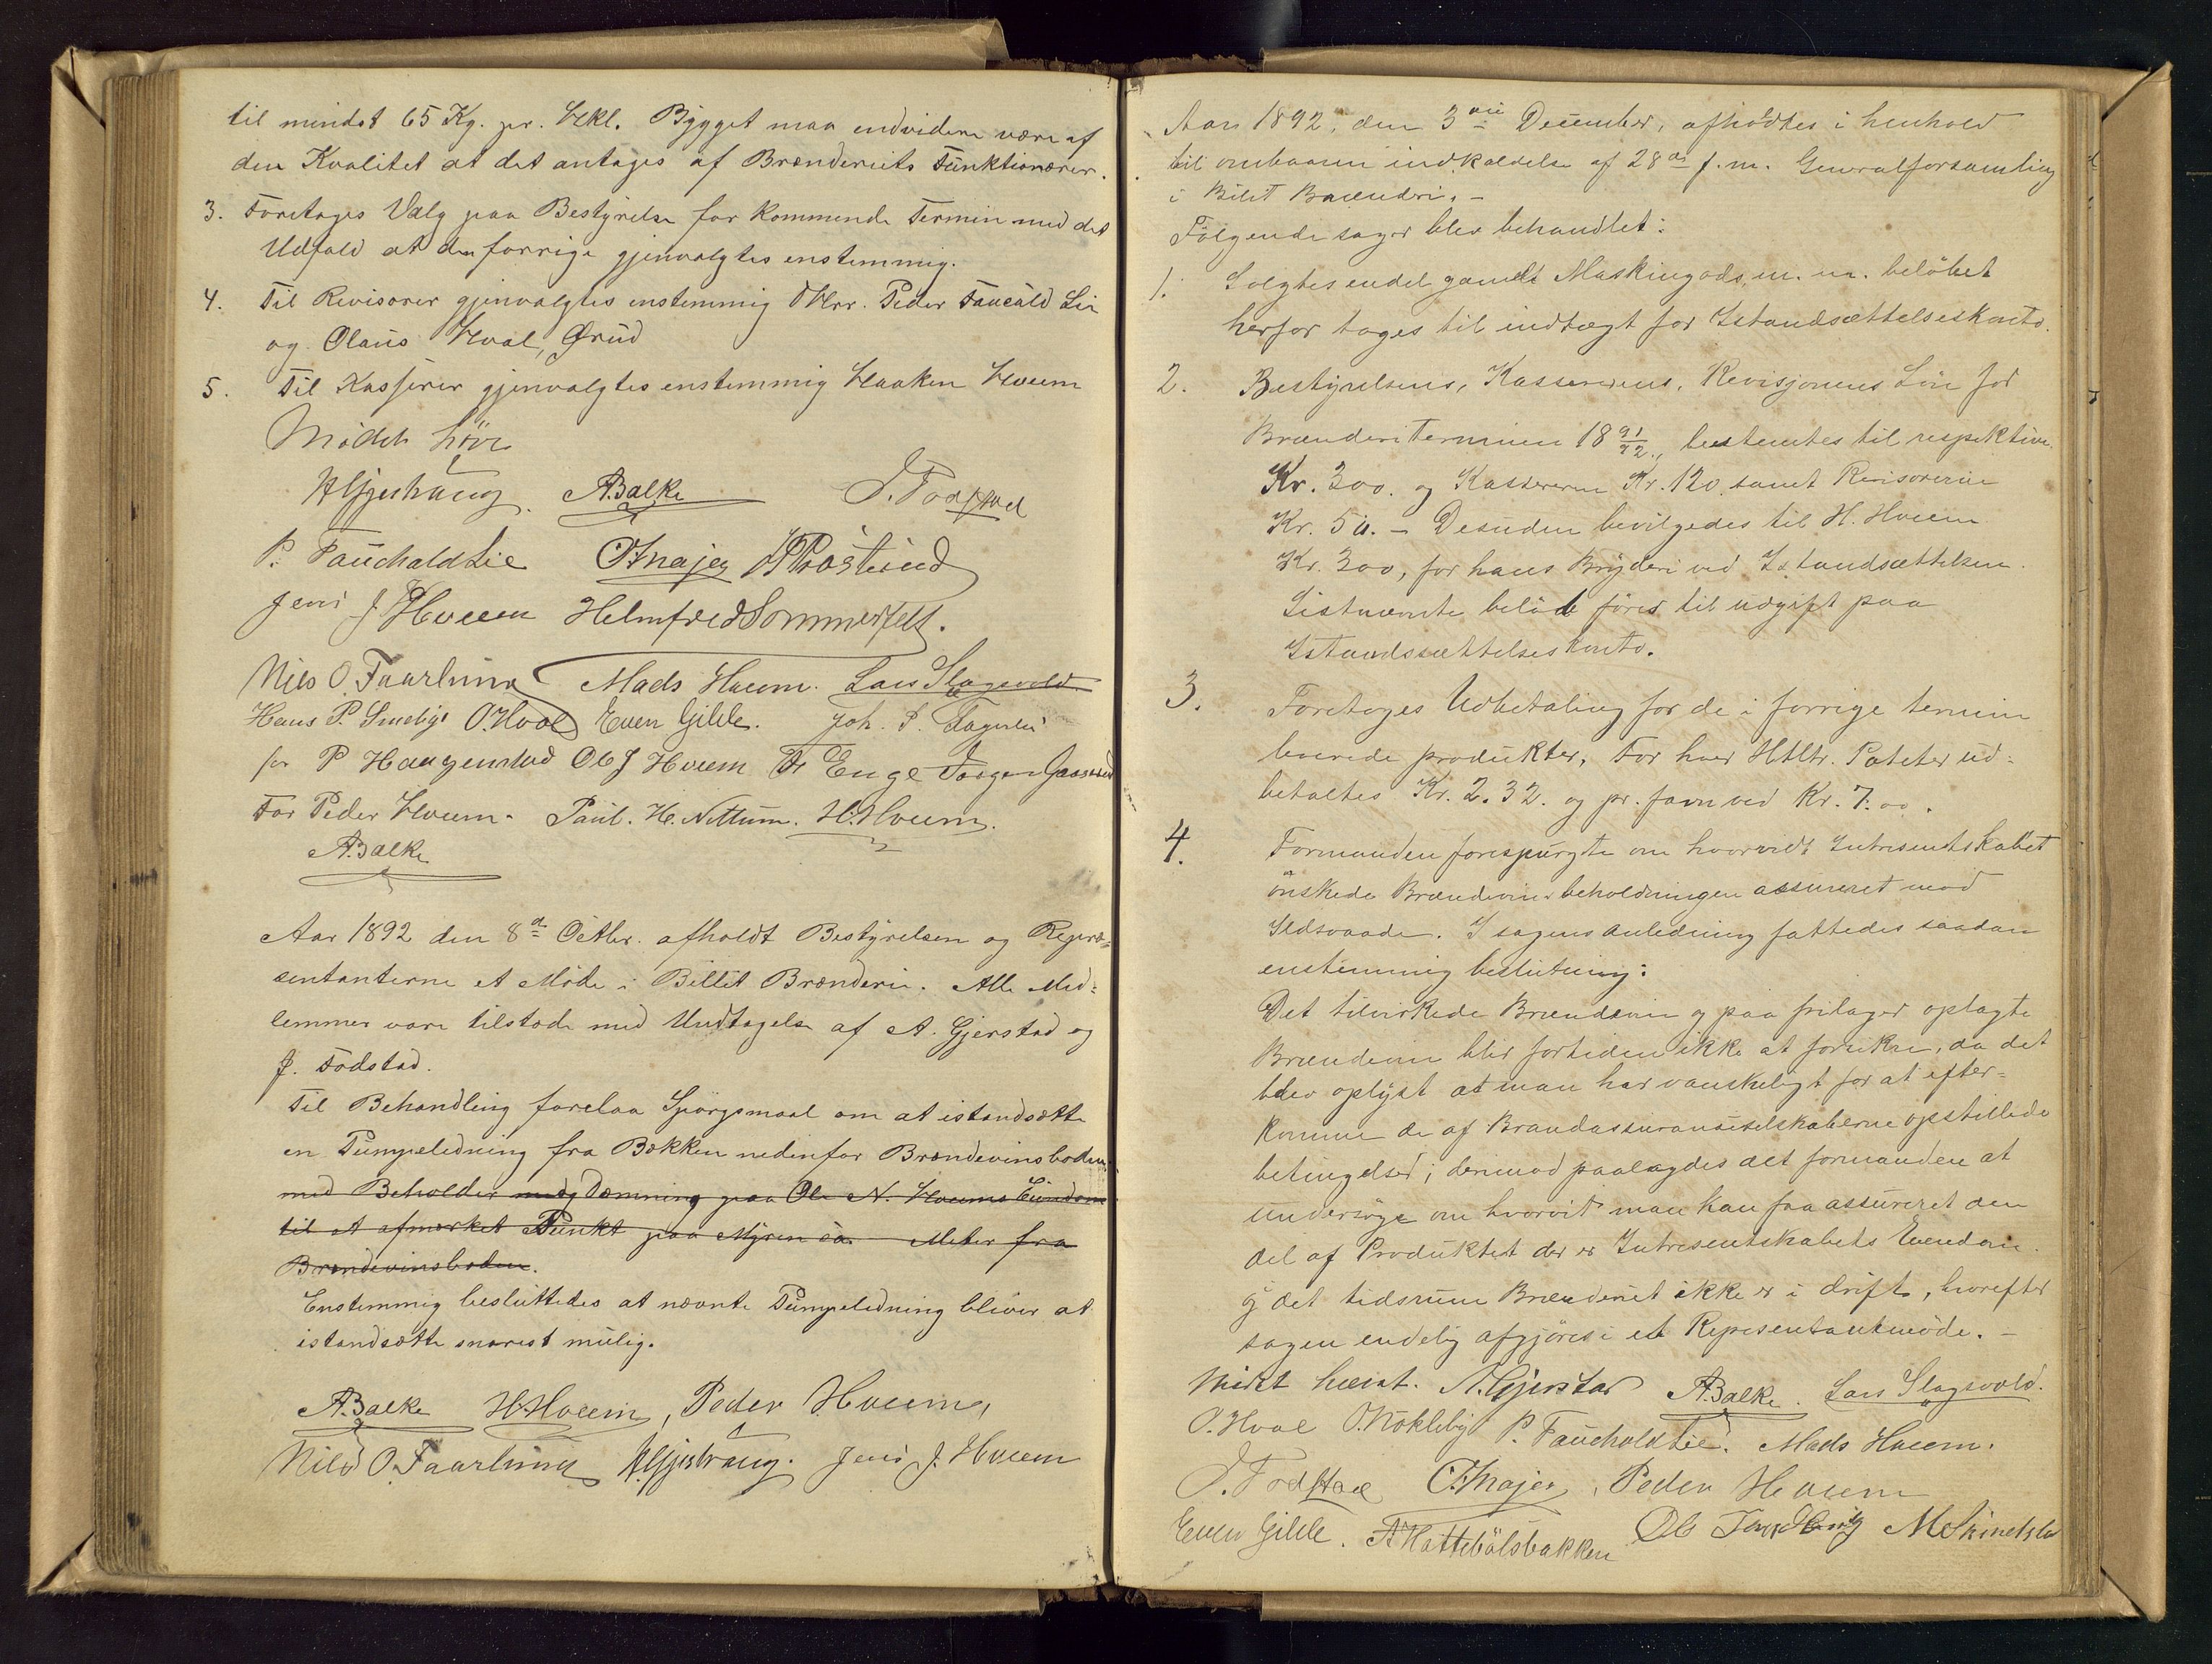 til mindst 65 Kg. pr. Hkl. Bygget maa endvidere være af
den Kvalitet at det antages af Brænderiets Funktionærer.
3. Foretages Valg paa Bestyrelse for kommende Termin med det
Udfald at den forrige gjenvalgtes enstemmig.
4. Til Revisorer gjenvalgtes enstemmig Hrr. Peder Fauchald Lie
og Olaus Hval, Grud
5. Til Kasserer gjenvalgtes enstemmig Haaken Hveem
Mødet hævet
A. Balke J. Fodstad
P. Fauchald Lie
Jens J. Hveem Helmfred Sommerfelt.
Nils O. Faarlund Mads Hveem. Lars Slagsvold
Hans P. Smedby O. Hval Even Gilde. Joh. P. Fagerli
for P Haugenstad Ole J Hveem Enge
For Peder Hveem. Paul. H. Nettum. H. Hveem.
A. Balke
Aar 1892 den 8de Octbr. afholdt Bestyrelsen og Repræ-
sentanterne et Møde i Billit Brænderi. Alle Med-
lemmer vare tilstede med Undtagelse af A. Gjerstad og
J. Fodstad.
Til Behandling forelaa Spørgsmaal om at istandsætte
en Pumpeledning fra Bækken nedenfor Brændevinsboden
med Beholder og Dæmning paa Ole N. Hveems Eiendom
til et afmærket Punkt paa Myren ca. Meter fra
Brændevinsboden.
Enstemmig besluttedes at nævnte Pumpeledning bliver at
istandsætte snarest mulig.
A. Balke H. Hveem, Peder Hveem,
Nils O. Faarlund Jens J. Hveem
Aar 1892, den 3die December, afholdtes i henhold
til ombaaren indkaldelse af 28de f.m. Generalforsamling
i Bilit Brænderi. -
Følgende sager blev behandlet:
1. Solgtes endel gamelt Maskingods m.m. beløbet
herfor tages til indtægt for Istandsættelseskonto.
2. Bestyrelsens, Kassererens, Revisjonens Løn for
Brænderiterminen 18 91/92, bestemtes til respektive
Kr. 300. og Kassereren Kr. 120. samt Revisorerne
Kr. 50. - Desuden bevilgedes til H. Hveem
Kr. 300, for hans Bryderi ved Istandsættelsen.
Sistnævnte beløb føres til udgift paa
Istandssættelseskonto.
3. Foretages Udbetaling for de i forrige termin
leverede produkter, For hver Htltr. Poteter ud-
betaltes Kr. 2.32. og pr. favn ved Kr. 7.00.
4. Formanden forespurgte om hvorvidt Intresentskabet
ønskede Brændevinsbeholdningen assureret mod
Ildsvaade. I sagens anledning fattedes saadan
enstemmig beslutning:
Det tilvirkede Brændevin og paa frilager oplagte
Brændevin blir fortiden ikke at forsikre, da det
blev oplyst at man har vanskeligt for at efter-
komme de af Brandassuranseselskaberne opstillede
betingelser; derimod paalagdes det formanden at
undersøge om hvorvit man kan faa assureret den
del af Produktet der er Intresentskabets Eiendom
i det tidsrum Brænderiet ikke er i drift, hvorefter
sagen endelig afgjøres i et Repesentantmøde. -
Mødet hævet. A. Gjerstad A. Balke. Lars Slagsvold.
O. Hval O. Nøkleby P. Fauchald Lie. Mads Hveem.
J. Fodstad Peder Hveem
Even Gilde. A Hattebølsbakken Ole